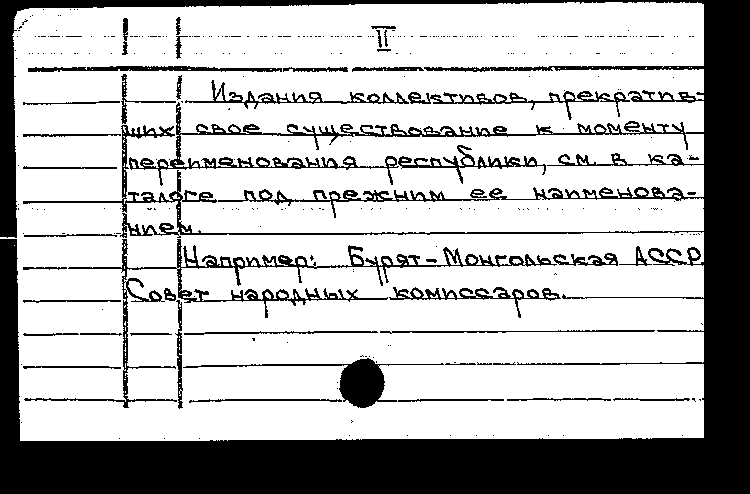 II
Издания коллективов, прекратив-
ших свое существование к моменту
переименования республики, см. в ка-
талоге под прежним ее наименова-
нием.
Например: Бурят-Монгольская АССР.
Совет народных комиссаров.